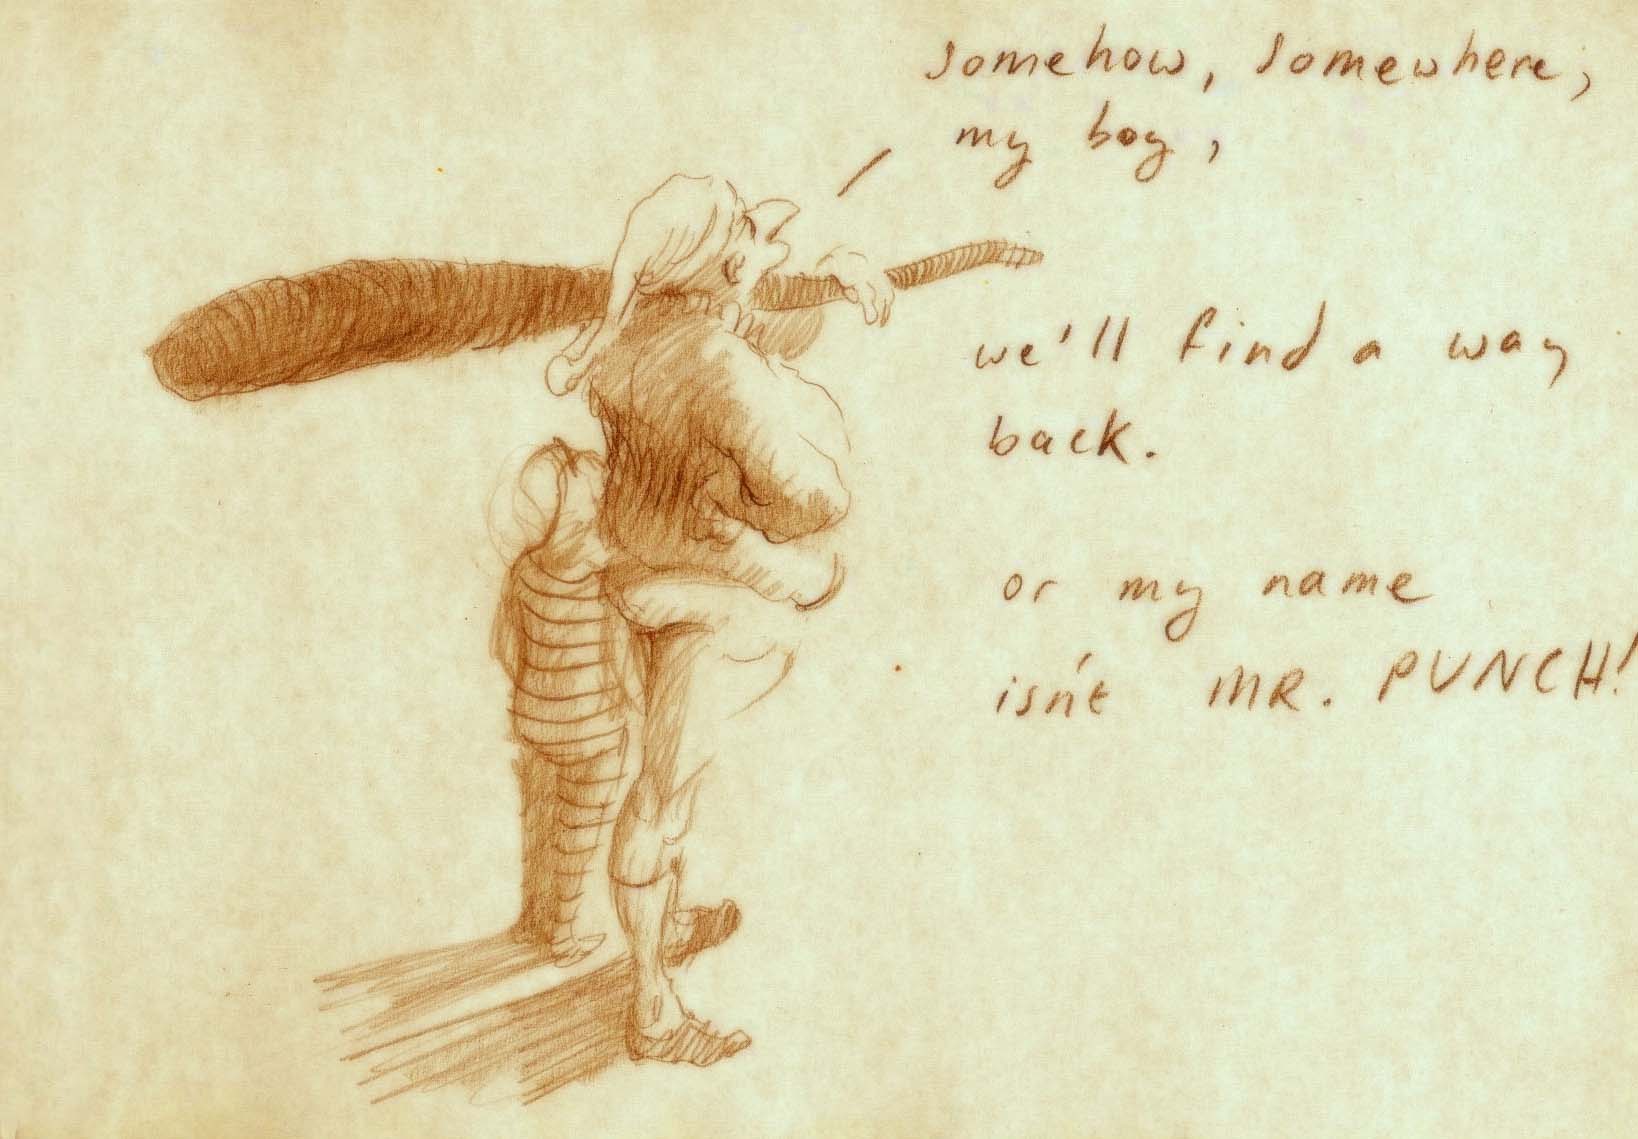 somehow, somewhere,
my boy,
we'll find a way
back.
or my name
isn't MR. PUNCH!